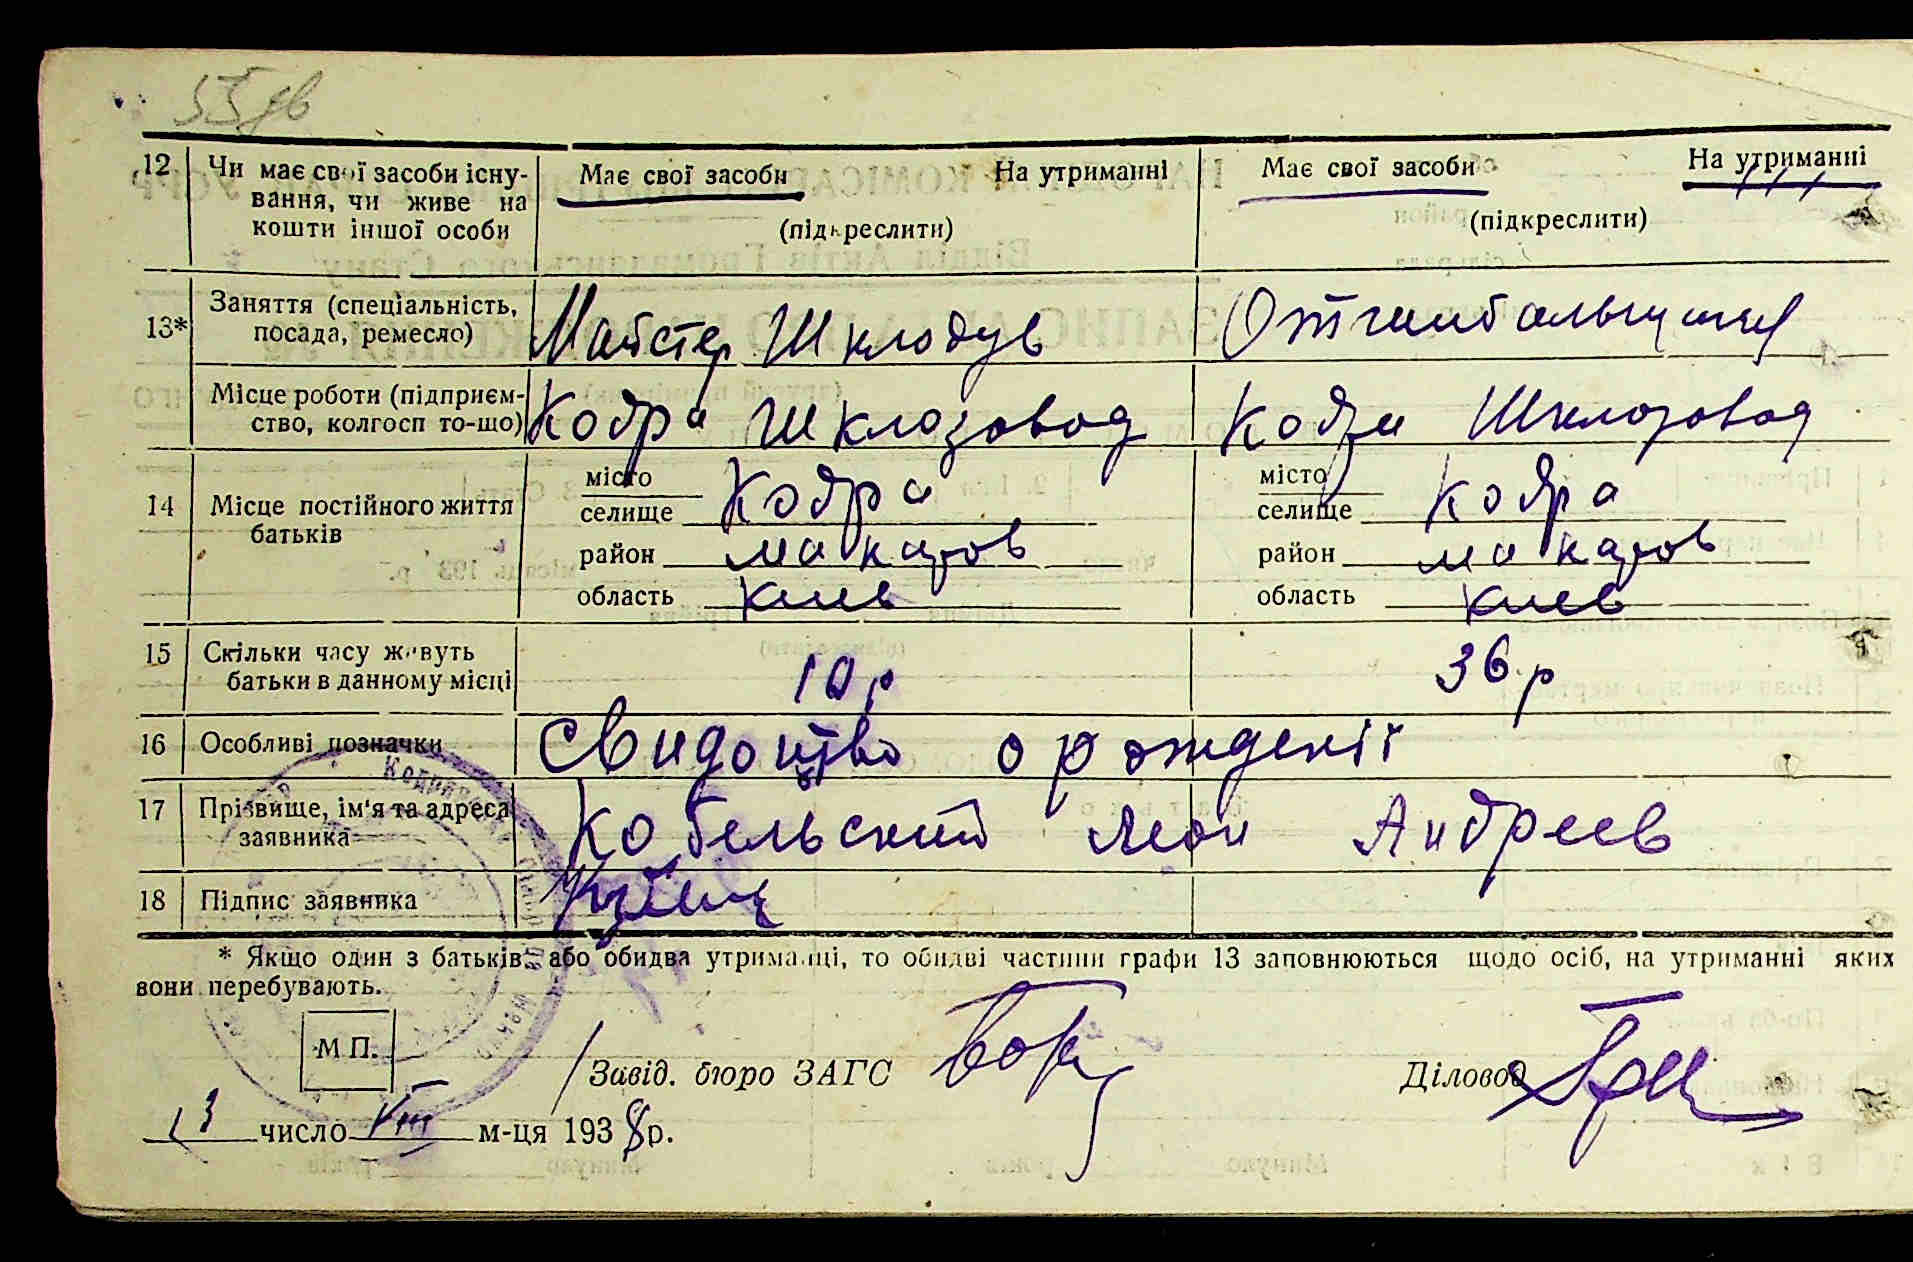 55дв
12 Чи має свої засоби існу-
вання, чи живе на
кошти іншої особи
Має свої засоби На утриманні
(підкреслити)
Має свої засоби На утриманні
(підкреслити)
13* Заняття (спеціальність,
посада, ремесло)
Майстер Шклодув
Місце роботи (підприєм-
ство, колгосп то-що)
Кодра Шклозавод
Кодра Шклозавод
14 Місце постійного життя
батьків
місто
селище Кодра
район Макаров
область Киев
місто
селище Кодра
район Макаров
область Киев
15 Скільки часу живуть
батьки в данному місці
10 р
36 р
16 Особливі позначки
Свидоцтво о рождениї
17 Прізвище, ім'я та адреса
заявника
Кобельский Леон Андреев
18 Підпис заявника
* Якщо один з батьків, або обидва утриманці, то обидві частини графи 13 заповнюються щодо осіб, на утриманні яких
вони перебувають.
М П.
Завід. бюро ЗАГС
Діловод
13 число VIII м-ця 1938 р.